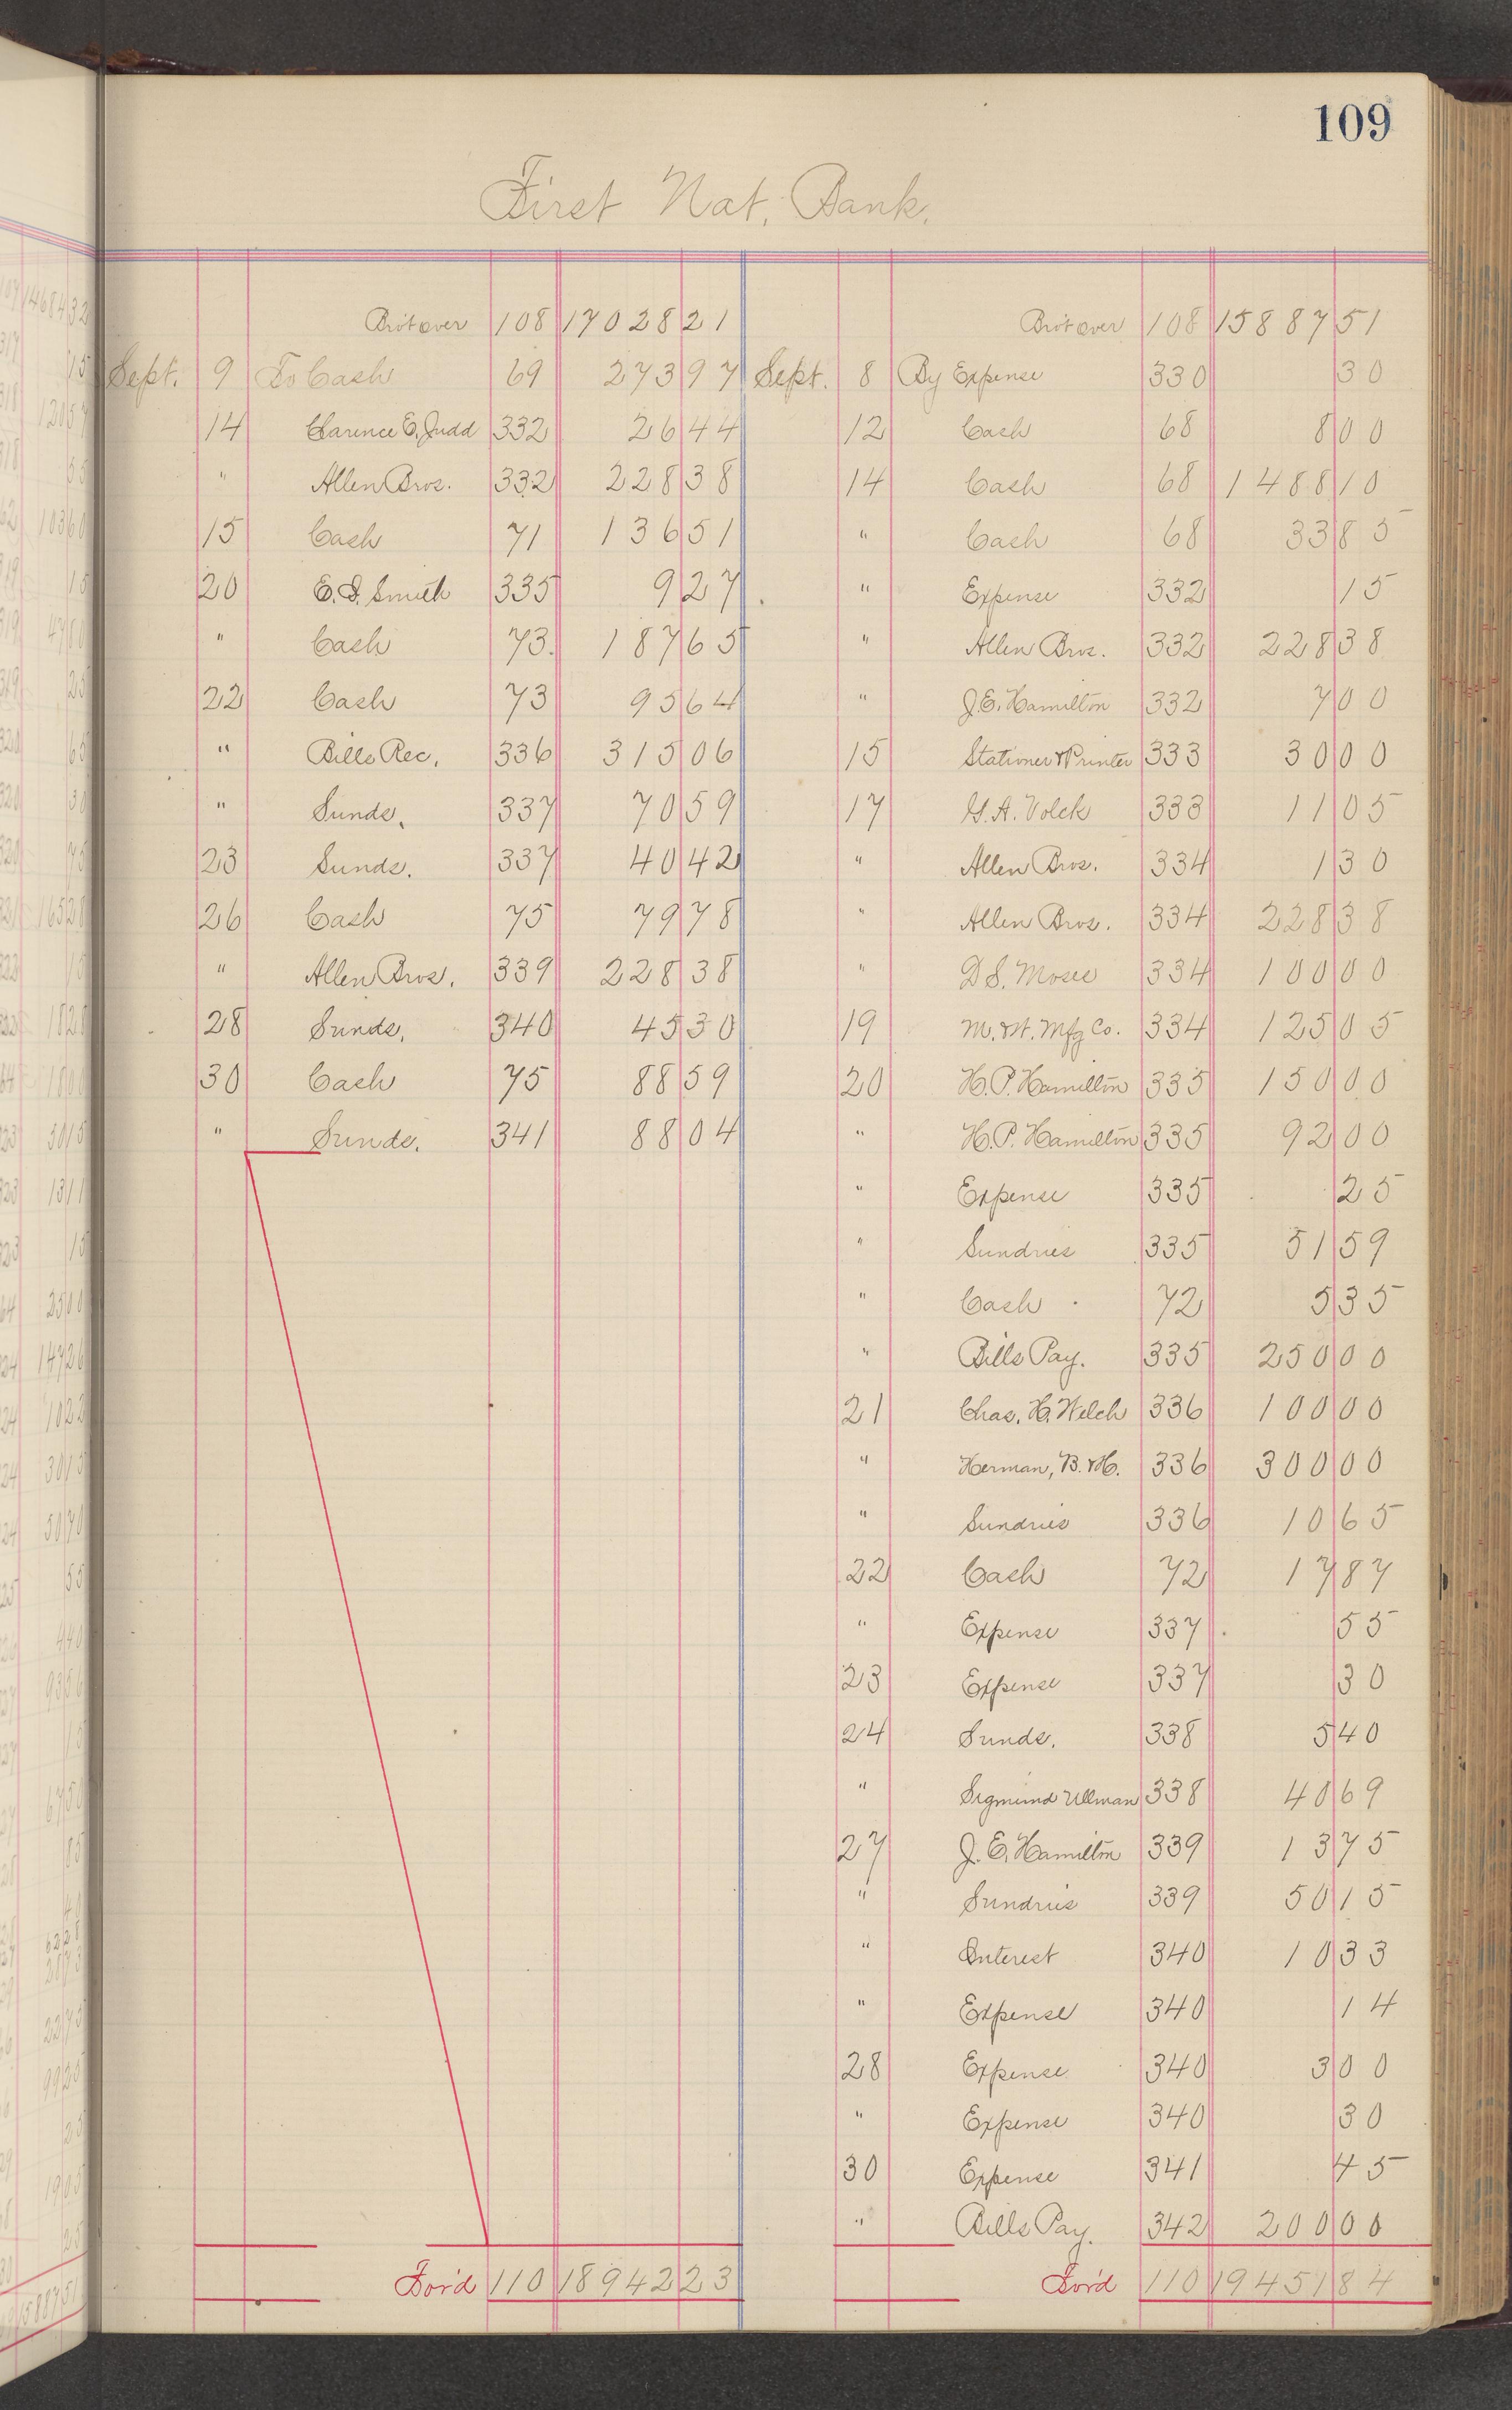 109
First Nat. Bank.
Bro't over 108 17028 21
Sept. 9 To Cash 69 273 97
14 Clarence E. Judd 332 26 44
" Allen Bros. 332 228 38
15 Cash 71 136 51
20 E. S. Smith 335 9 27
" Cash 73 187 65
22 Cash 73 95 64
" Bills Rec. 336 315 06
" Sunds. 337 70 59
23 Sunds. 337 40 42
26 Cash 75 79 78
" Allen Bros. 339 228 38
28 Sunds. 340 45 30
30 Cash 75 88 59
" Sunds. 341 88 04
For'd 110 18942 23
Bro't over 108 15887 51
Sept. 8 By Expense 330 30
12 Cash 68 8 00
14 Cash 68 1488 10
" Cash 68 33 85
" Expense 332 15
" Allen Bros. 332 228 38
" J. E. Hamilton 332 7 00
15 Stationer & Printer 333 30 00
17 G. A. Volck 333 11 05
" Allen Bros. 334 1 30
" Allen Bros. 334 228 38
" D. S. Moses 334 100 00
19 M. & H. Mfg Co. 334 125 05
20 H. P. Hamilton 335 150 00
" H. P. Hamilton 335 92 00
" Expense 335 25
" Sundries 335 51 59
" Cash 72 5 35
" Bills Pay. 335 250 00
21 Chas. H. Welch 336 100 00
" Herman, B. & H. 336 300 00
" Sundries 336 10 65
22 Cash 72 17 87
" Expense 337 55
23 Expense 337 30
24 Sunds. 338 5 40
" Sigmund Ullman 338 40 69
27 J. E. Hamilton 339 13 75
" Sundries 339 50 15
" Interest 340 10 33
" Expense 340 14
28 Expense 340 3 00
" Expense 340 30
30 Expense 341 45
" Bills Pay. 342 200 00
For'd 110 19451 84